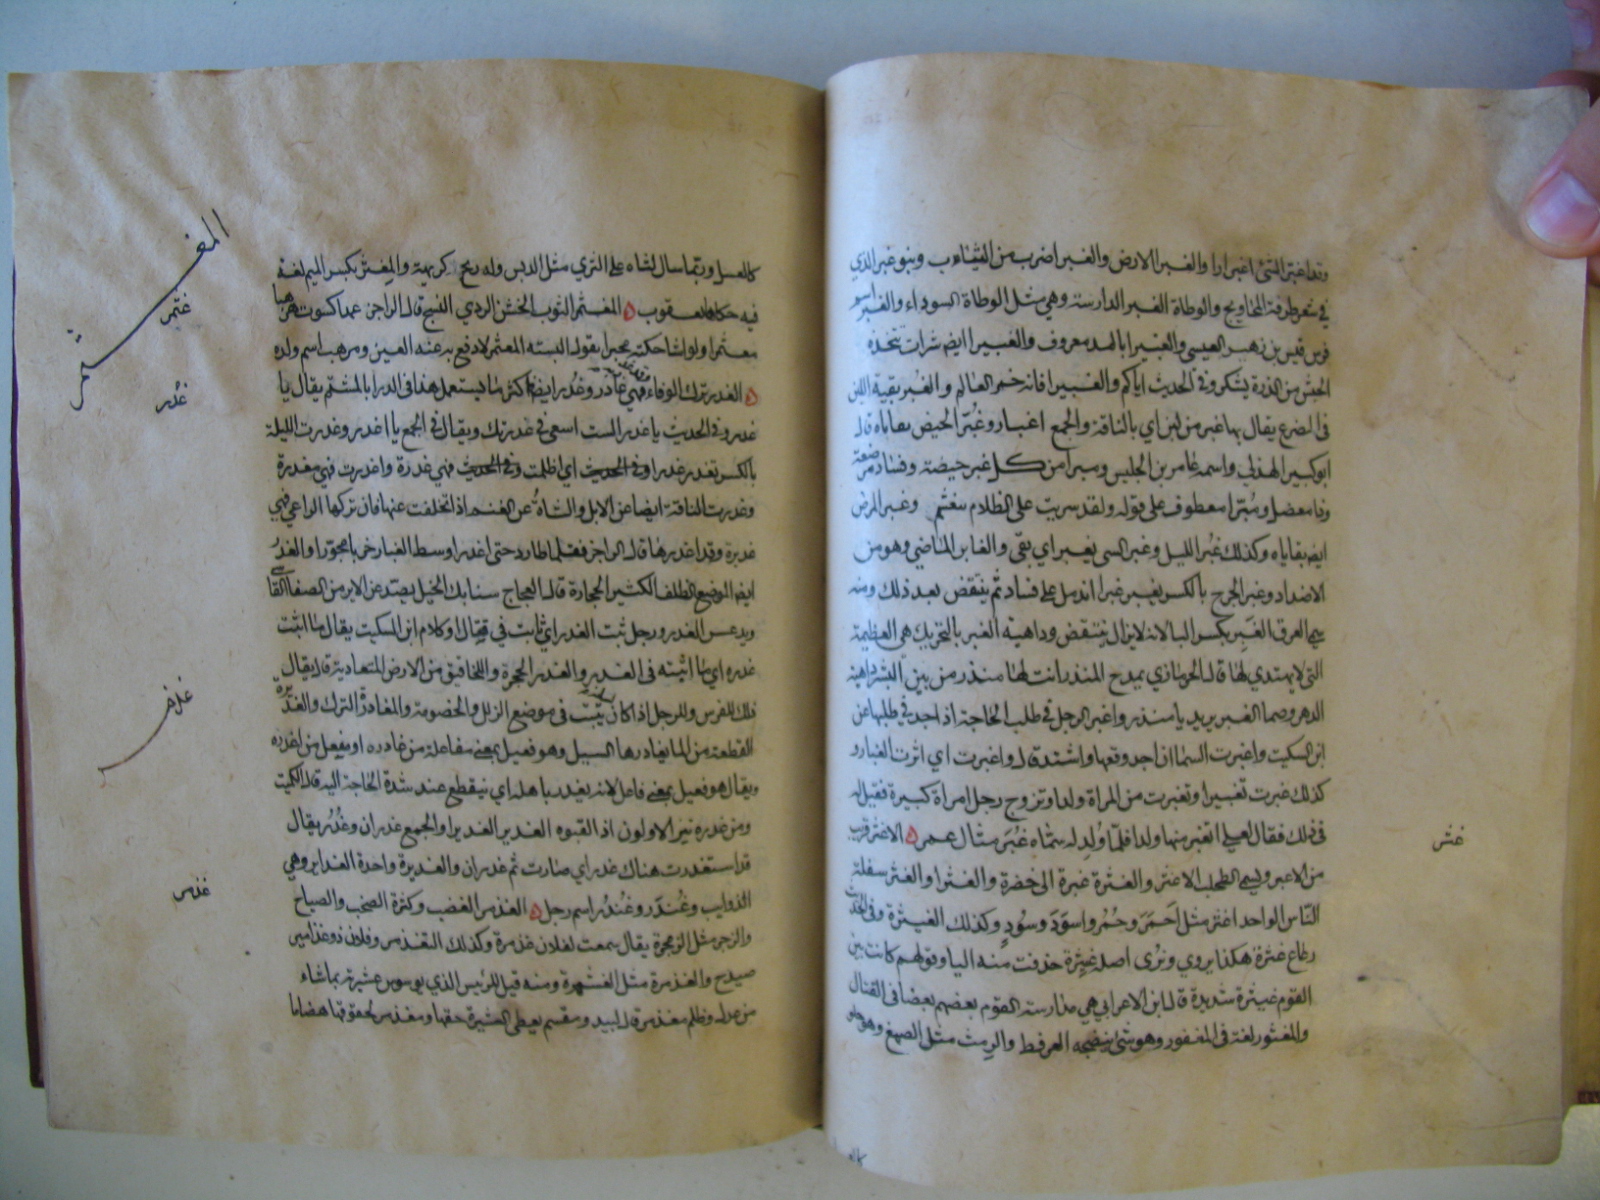 وقد اغبر الشئ اغبرارا والغبرا الارض والغبرا ضرب من النبات وبنو غبرا الذي
في شعر طرفة المحاويج والوطاة الغبرا الدارسة وهي مثل الوطاة السوداء والغبرا اسم
فرس قيس بن زهير العبسي والغبيرا بالمد معروف والغبيرا ايضا شراب تتخذه
الحبش من الذرة يسكر وفي الحديث اياكم والغبيرا فانه خمر العالم والغبر بقية اللبن
في الضرع يقال بها غبر من لبن اي بالناقة والجمع اغبار وغبر الحيض بقاياه قال
ابو كبير الهذلي واسمه عامر بن الحليس ومبرا من كل غبر حيضة وفساد مرضعة
وداء معضل ومبرا معطوف على قوله ولقد سريت على الظلام بمغشم وغبر المرض
ايضا بقاياه وكذلك غبر الليل وغبر الشي يغبر اي بقي والغابر الماضي وهو من
الاضداد وغبر الجرح بالكسر يغبر غبرا اندمل على فساد ثم ينتقض بعد ذلك ومنه
سمي العرق الغبر بكسر البا لانه لا يزال ينتقض وداهية الغبر بالتحريك هي العظيمة
التي لا يهتدي لها قال الحرمازي يمدح المنذر انت لها منذر من بين البشر داهية
الدهر وصما الغبر يريد يا منذر واغبر الرجل في طلب الحاجة اذا جد في طلبها عن
ابن السكيت واغبرت السما اذا جد وقعها واشتد قال واغبرت اي اثرت الغبار و
كذلك غبرت تغبيرا وتغبرت من المراة ولدا وتزوج رجل امراة كبيرة فقيل له
في ذلك فقال لعلي اتغبر منها ولدا فلما ولد له سماه غبر مثال عمر ه الاغثر قريب
غثر
من الاغبر ويسمى الطحلب الاغثر والغثرة غبرة الى خضرة والغثرا والغثر سفلة
الناس الواحد اغثر مثل احمر وحمر واسود وسود وكذلك الغيثرة وفي الحديث
رعاع غثرة هكذا يروي ونرى اصله غيثرة حذفت منه اليا وقولهم كانت بين
القوم غيثرة شديدة قال ابن الاعرابي هي مداوسة القوم بعضهم بعضا في القتال
والمغثور لغة في المغفور وهو شئ ينضجه العرفط والرمث مثل الصمغ وهو حلو
كالعسل
كالعسل وربما سال لثاه على الثرى مثل الدبس وله ريح كريهة والمغثر بكسر الميم لغة
فيه حكاها يعقوب ه المغثمر الثوب الخشن الردي النسج قال الراجز عمدا كسوت مرهبا
المغثمر
غثمر
مغثمرا ولو اشا حكته محبرا يقول البسته المغثمر لادفع به عنه العين ومرهب اسم ولده
ه الغدر ترك الوفاء فهو غادر وغدر ايضا واكثر ما يستعمل هذا في الندا بالشتم يقال يا
غدر
غدر وفي الحديث يا غدر الست اسعى في غدرتك ويقال في الجمع يا ال غدر وغدرت الليلة
بالكسر تغدر غدرا وفي الحديث اي اظلمت وفي الحديث فهي غدرة واغدرت فهي مغدرة
وغدرت الناقة ايضا عن الابل والشاة عن الغنم اذا تخلفت عنها فان تركها الراعي فهي
غديرة وقد اغدرها قال الراجز فقلما طارد حتى اغدرا وسط الغبار خربا مجورا والغدر
ايضا الموضع الظلف الكثير الحجارة قال العجاج سنابك الخيل يصدعن الاير من الصفا القاسي
ويدعسن الغدر ورجل ثبت الغدر اي ثابت في قتال او كلام ابن السكيت يقال ما اثبت
غدره اي ما اثبته في الغدر والغدر الجحرة واللخاقيق من الارض المتعادية قال يقال
ذلك للفرس وللرجل اذا كان يثبت في موضع الزلل والخصومة والمغادرة الترك والغديرة
غذر
القطعة من الما يغادرها السيل وهو فعيل بمعنى مفاعل من غادره او مفعل من اغدره
ويقال هو فعيل بمعنى فاعل لانه يغدر باهله اي ينقطع عند شدة الحاجة اليه قال الكميت
ومن غدره نبز الاولون اذ لقبوه الغدير الغديرا والجمع غدران وغدر يقال
قد استغدرت هناك غدر اي صارت ثم غدران والغديرة واحدة الغداير وهي
الذوايب وغندر وغندر اسم رجل ه الغذمر الغضب وكثرة الصخب والصياح
غذمر
والزجر مثل الزمجرة يقال سمعت لفلان غذمرة وكذلك التغذمر وفلان ذو غذامير
صيدح والغذمرة مثل الغشمرة ومنه قيل للرئيس الذي يسوس عشيرته بما شاء
من عدل وظلم مغذمر قال لبيد ومقسم يعطى العشيرة حقها ومغذمر لحقوقها هضامها